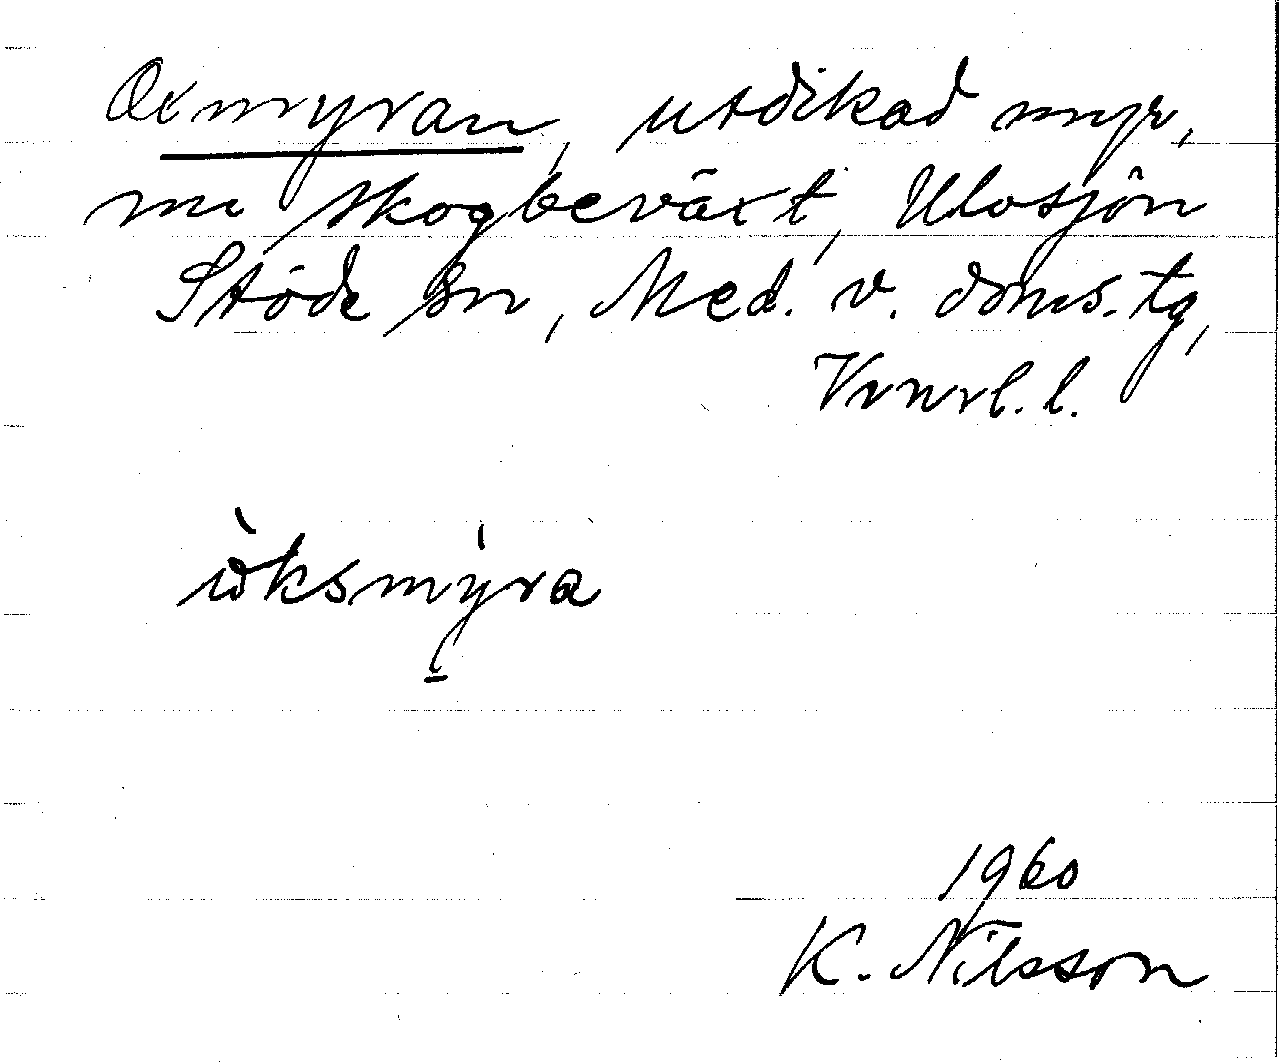 Oxmyran, utdikad myr,
nu skogbeväxt, Ulvsjön
Stöde sn, Med. v. doms. tg,
Vrnrl. l.
ùksmýra
1960
K. Nilsson